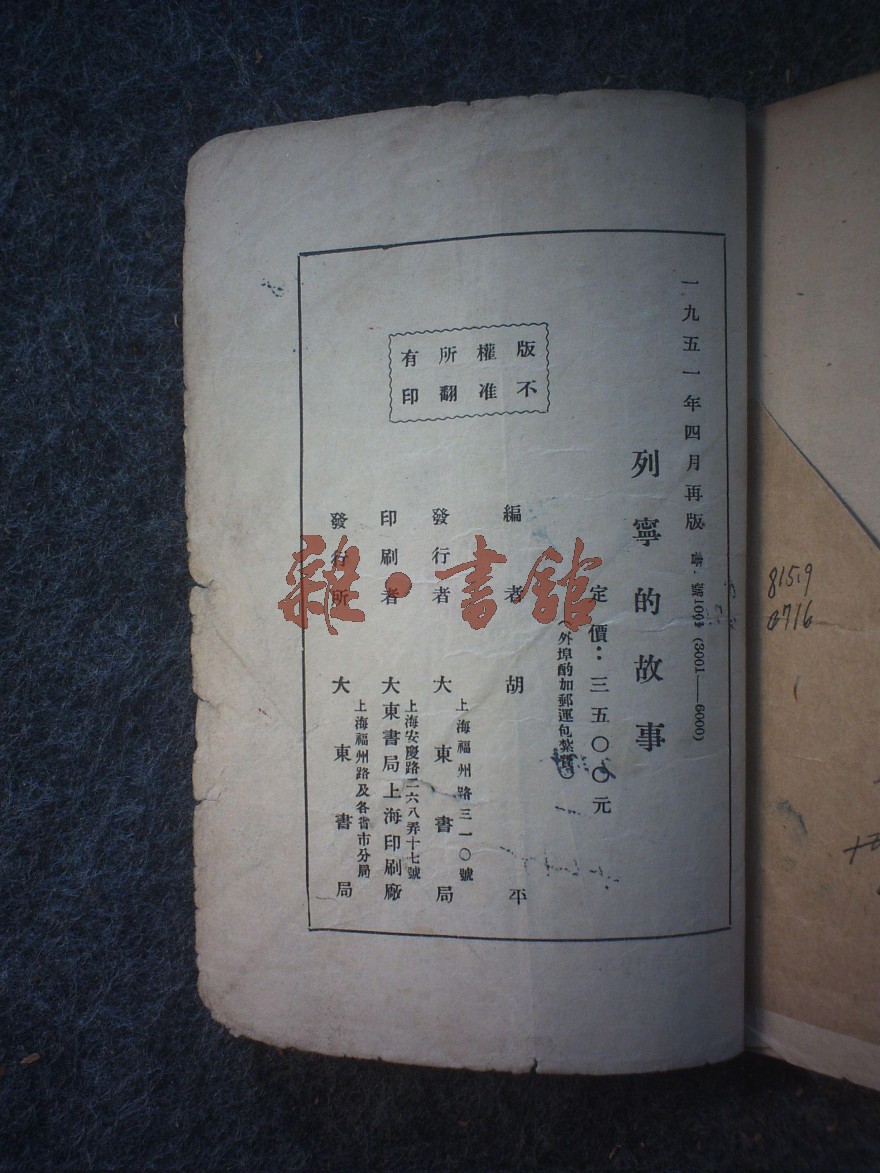 一九五一年四月再版 書・號1004 (3001——6000)
列寧的故事
定價：三五〇〇元
(外埠酌加郵運包紮費)
編者 胡平
上海福州路三一〇號
發行者 大東書局
上海安慶路二六八弄十七號
印刷者 大東書局上海印刷廠
上海福州路及各省市分局
發行所 大東書局
版權所有
不准翻印
雜・書館
8159
0716